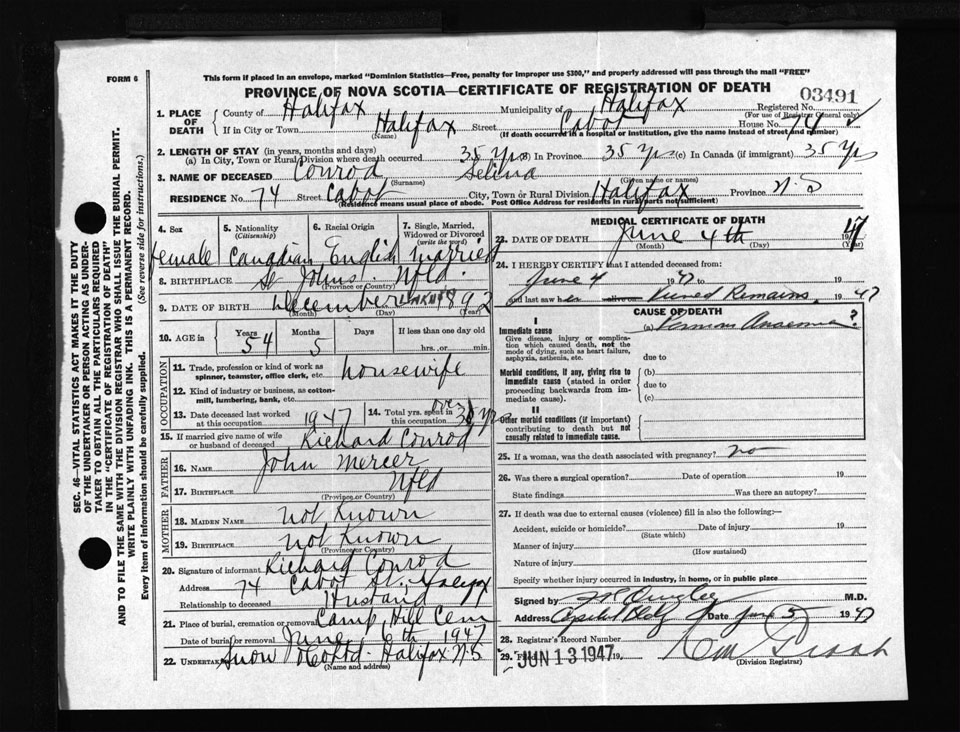 FORM 6
This form if placed in an envelope, marked "Dominion Statistics—Free, penalty for improper use $300," and properly addressed will pass through the mail "FREE"
PROVINCE OF NOVA SCOTIA—CERTIFICATE OF REGISTRATION OF DEATH
03491
1. PLACE OF DEATH
County of Halifax Municipality of Halifax Registered No.
(For use of Registrar General only)
If in City or Town Halifax Street Cabot House No. 74
(Name) (If death occurred in a hospital or institution, give the name instead of street and number)
2. LENGTH OF STAY (in years, months and days)
(a) In City, Town or Rural Division where death occurred 35 Yrs (b) In Province 35 Yrs (c) In Canada (if immigrant) 35 Yrs
3. NAME OF DECEASED Conrod Selina
(Surname) (Given name or names)
RESIDENCE No. 74 Street Cabot City, Town or Rural Division Halifax Province N.S
(Residence means usual place of abode. Post Office Address for residents in rural parts not sufficient)
4. Sex 5. Nationality (Citizenship) 6. Racial Origin 7. Single, Married, Widowed or Divorced (write the word)
Female Canadian English Married
8. BIRTHPLACE St Johns. Nfld.
(Province or Country)
9. DATE OF BIRTH December 1892
(Month) (Day) (Year)
10. AGE in Years Months Days If less than one day old
54 5 hrs. or min.
OCCUPATION
11. Trade, profession or kind of work as spinner, teamster, office clerk, etc. housewife
12. Kind of industry or business, as cotton-mill, lumbering, bank, etc.
13. Date deceased last worked at this occupation 1947 14. Total yrs. spent in this occupation
15. If married give name of wife or husband of deceased Richard Conrod
FATHER
16. NAME John Mercer
17. BIRTHPLACE Nfld
(Province or Country)
MOTHER
18. MAIDEN NAME Not Known
19. BIRTHPLACE Not Known
(Province or Country)
20. Signature of informant Richard Conrod
Address 74 Cabot St. Halifax
Relationship to deceased Husband
21. Place of burial, cremation or removal Camp Hill Cem
Date of burial or removal June 1947
22. UNDERTAKER Snow & Co Ltd - Halifax N.S
(Name and address)
MEDICAL CERTIFICATE OF DEATH
23. DATE OF DEATH June 4th 1947
(Month) (Day) (Year)
24. I HEREBY CERTIFY that I attended deceased from
June 4 1947 to 19
and last saw her alive on Viewed Remains. 1947
CAUSE OF DEATH
I
Immediate cause (a) Pernicious Anaemia?
Give disease, injury or complication which caused death, not the mode of dying, such as heart failure, asphyxia, asthenia, etc. due to
Morbid conditions, if any, giving rise to immediate cause (stated in order proceeding backwards from immediate cause). (b) due to (c)
II
Other morbid conditions (if important) contributing to death but not causally related to immediate cause.
25. If a woman, was the death associated with pregnancy? no
26. Was there a surgical operation? Date of operation 19
State findings Was there an autopsy?
27. If death was due to external causes (violence) fill in also the following:—
Accident, suicide or homicide? Date of injury 19
(State which)
Manner of injury
(How sustained)
Nature of injury
Specify whether injury occurred in industry, in home, or in public place
Signed by M.D.
Address Capitol Bldg Date June 5 1947
28. Registrar's Record Number
29. JUN 13 1947 19
(Division Registrar)
SEC. 46—VITAL STATISTICS ACT MAKES IT THE DUTY
OF THE UNDERTAKER OR PERSON ACTING AS UNDER-
TAKER TO OBTAIN ALL THE PARTICULARS REQUIRED
IN THE "CERTIFICATE OF REGISTRATION OF DEATH"
AND TO FILE THE SAME WITH THE DIVISION REGISTRAR WHO SHALL ISSUE THE BURIAL PERMIT.
WRITE PLAINLY WITH UNFADING INK. THIS IS A PERMANENT RECORD.
Every item of information should be carefully supplied. (See reverse side for instructions.)